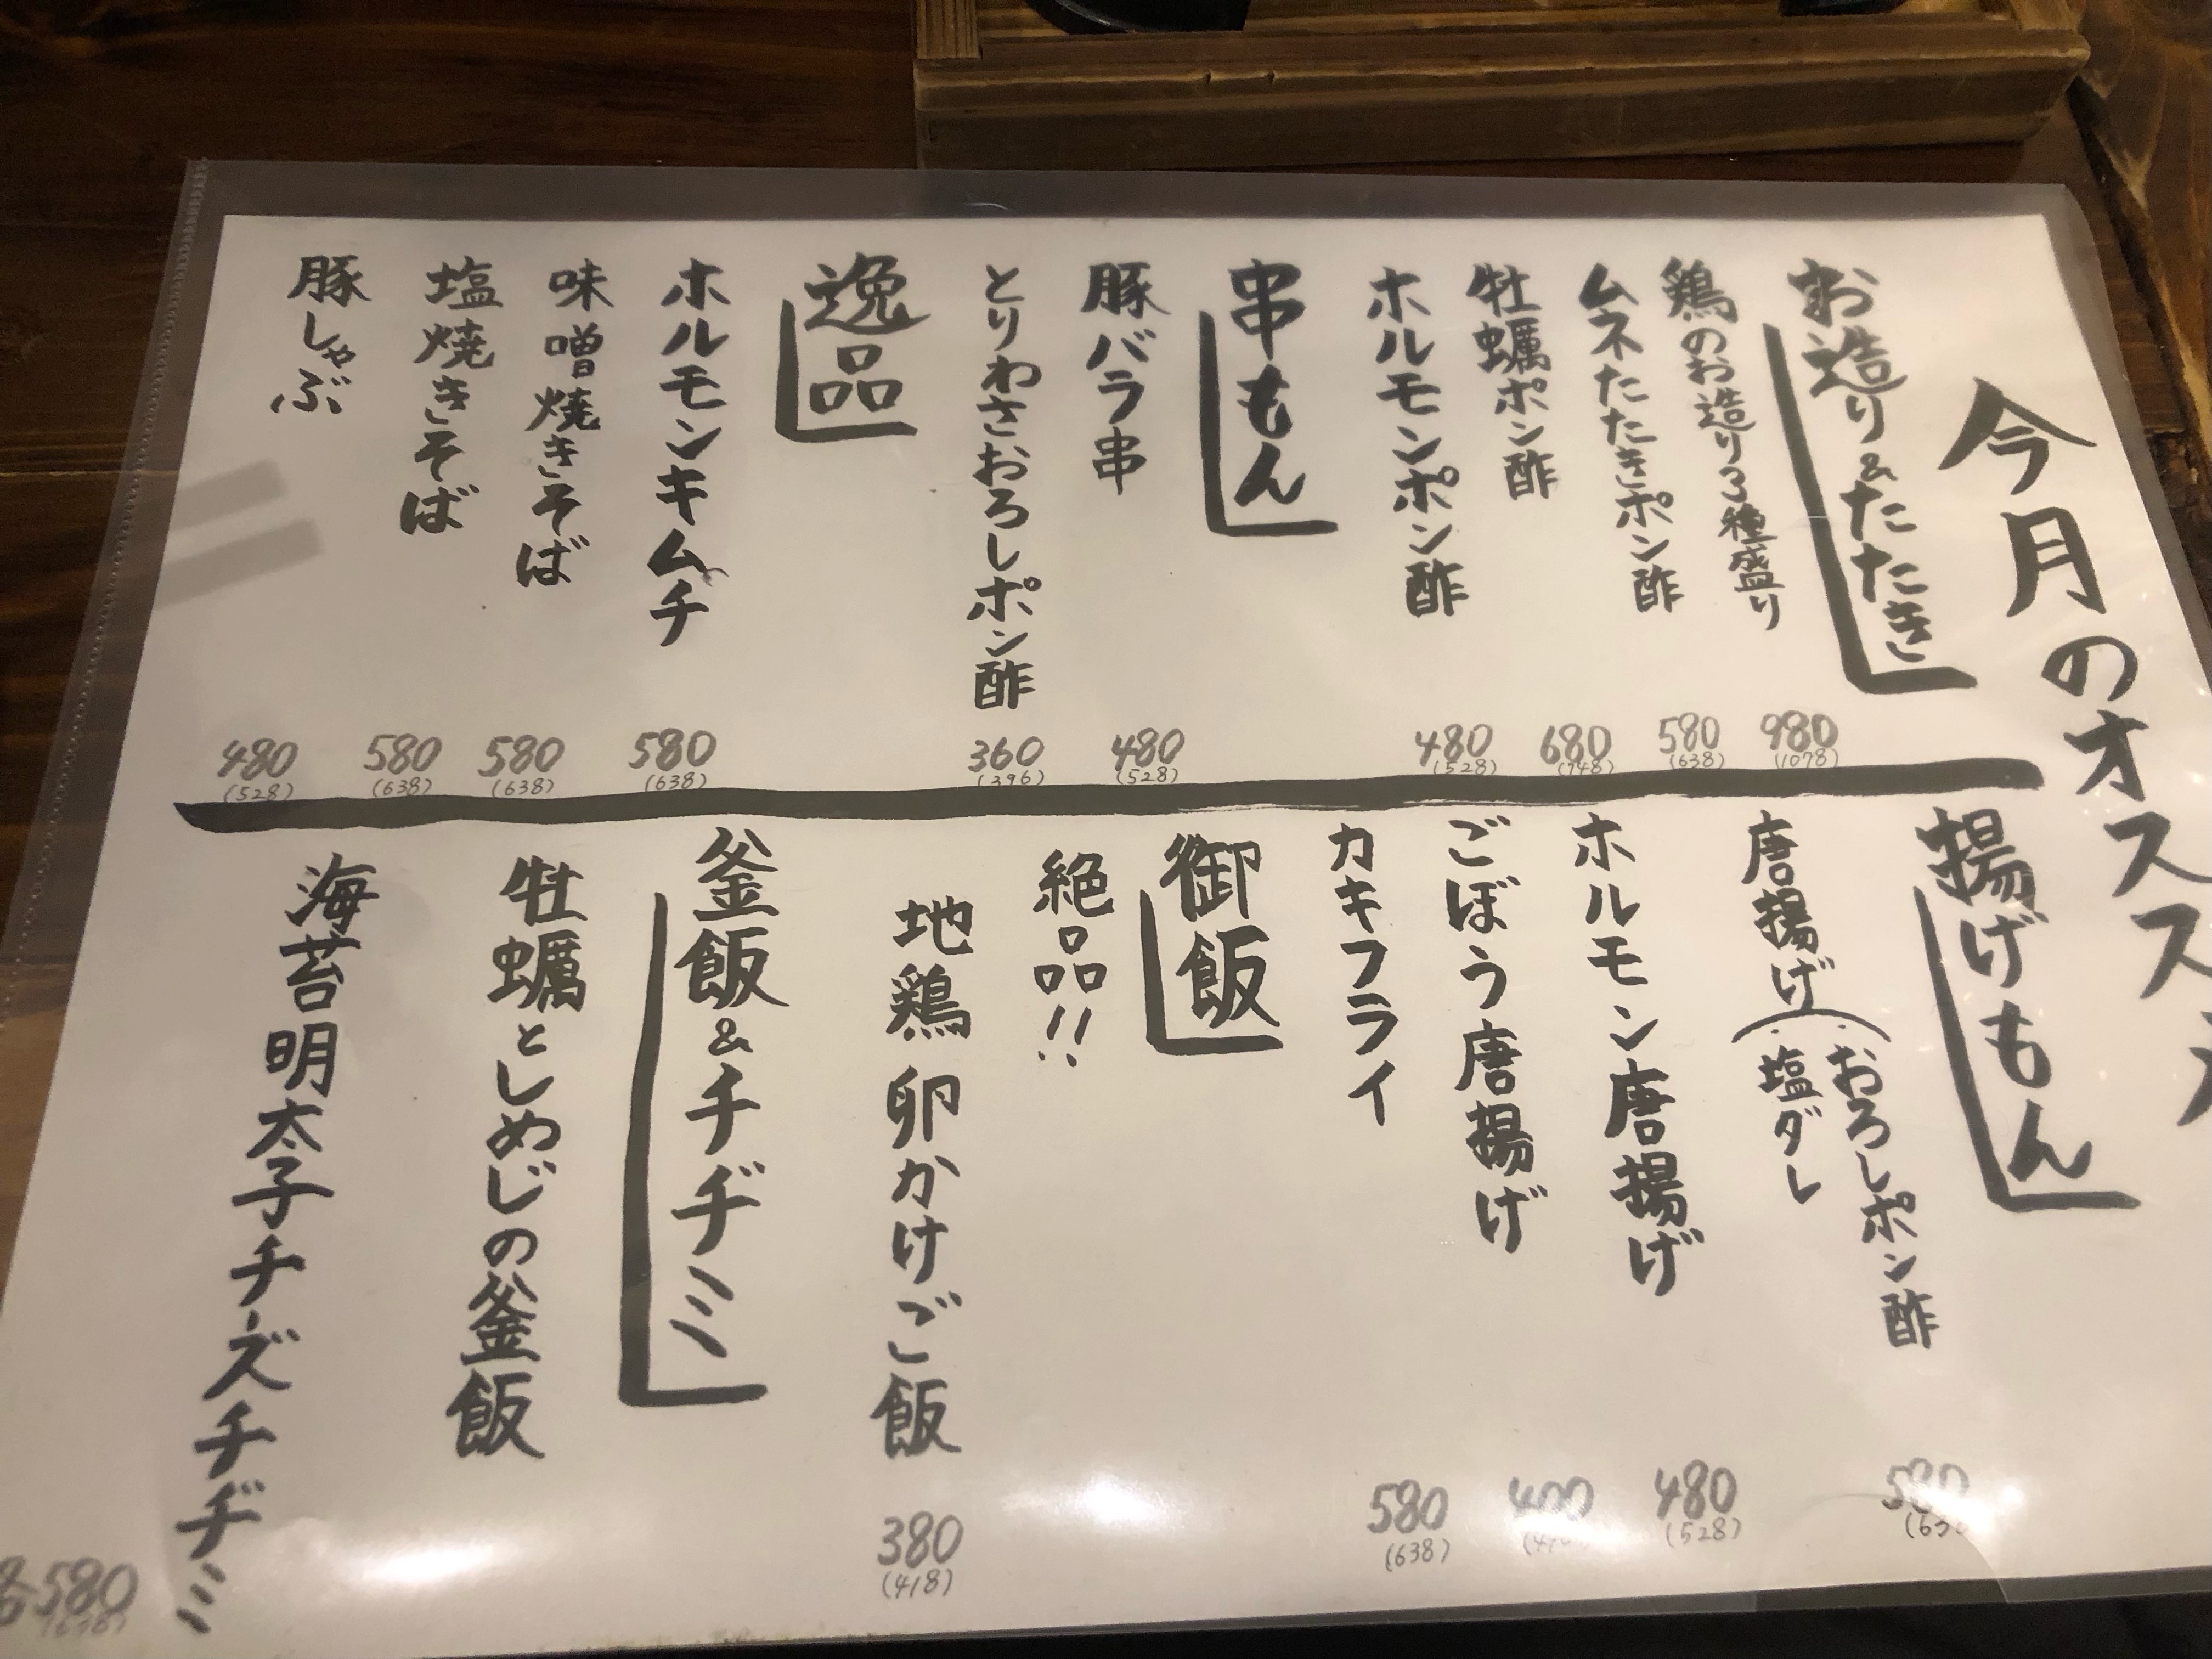 今月のオススメ
お造り&たたき
鶏のお造り3種盛り 980 (1078)
ムネたたきポン酢 580 (638)
牡蠣ポン酢 680 (748)
ホルモンポン酢 480 (528)
串もん
豚バラ串 480 (528)
とりわさおろしポン酢 360 (396)
逸品
ホルモンキムチ 580 (638)
味噌焼きそば 580 (638)
塩焼きそば 580 (638)
豚しゃぶ 480 (528)
揚げもん
唐揚げ(・おろしポン酢 580
・塩ダレ
ホルモン唐揚げ 480 (528)
ごぼう唐揚げ
カキフライ 580 (638)
御飯
絶品!!
地鶏 卵かけご飯 380 (418)
釜飯&チヂミ
牡蠣としめじの釜飯
海苔明太子チーズチヂミ
580 (638)